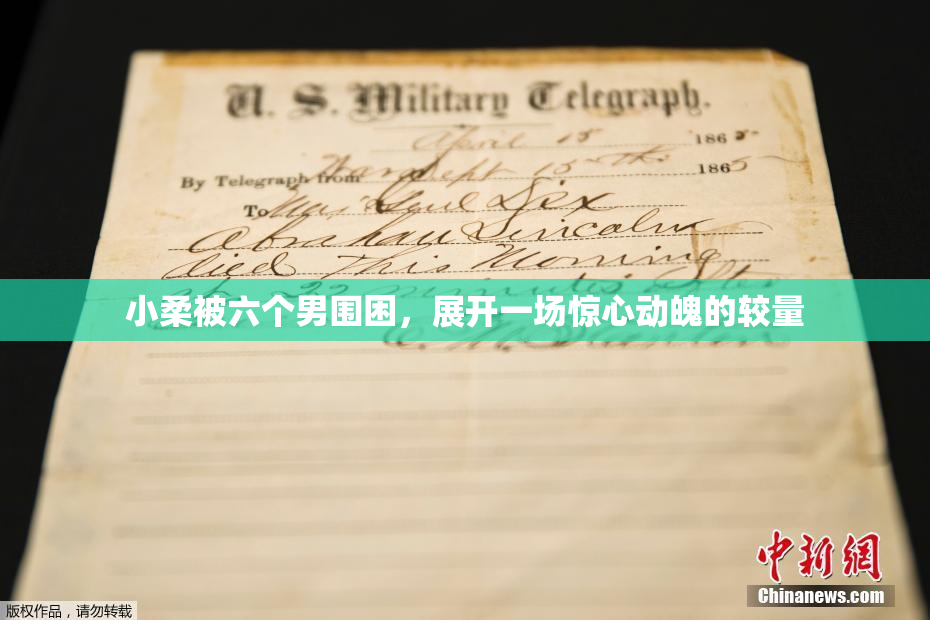 U. S. Military Telegraph.
April 15 1865
By Telegraph from War Dept 15th 1865
To Maj Genl Dix
Abraham Lincoln
died This Morning
at 22 minutes after
小柔被六个男围困，展开一场惊心动魄的较量
E. M. Stanton
中新网
Chinanews.com
版权作品，请勿转载